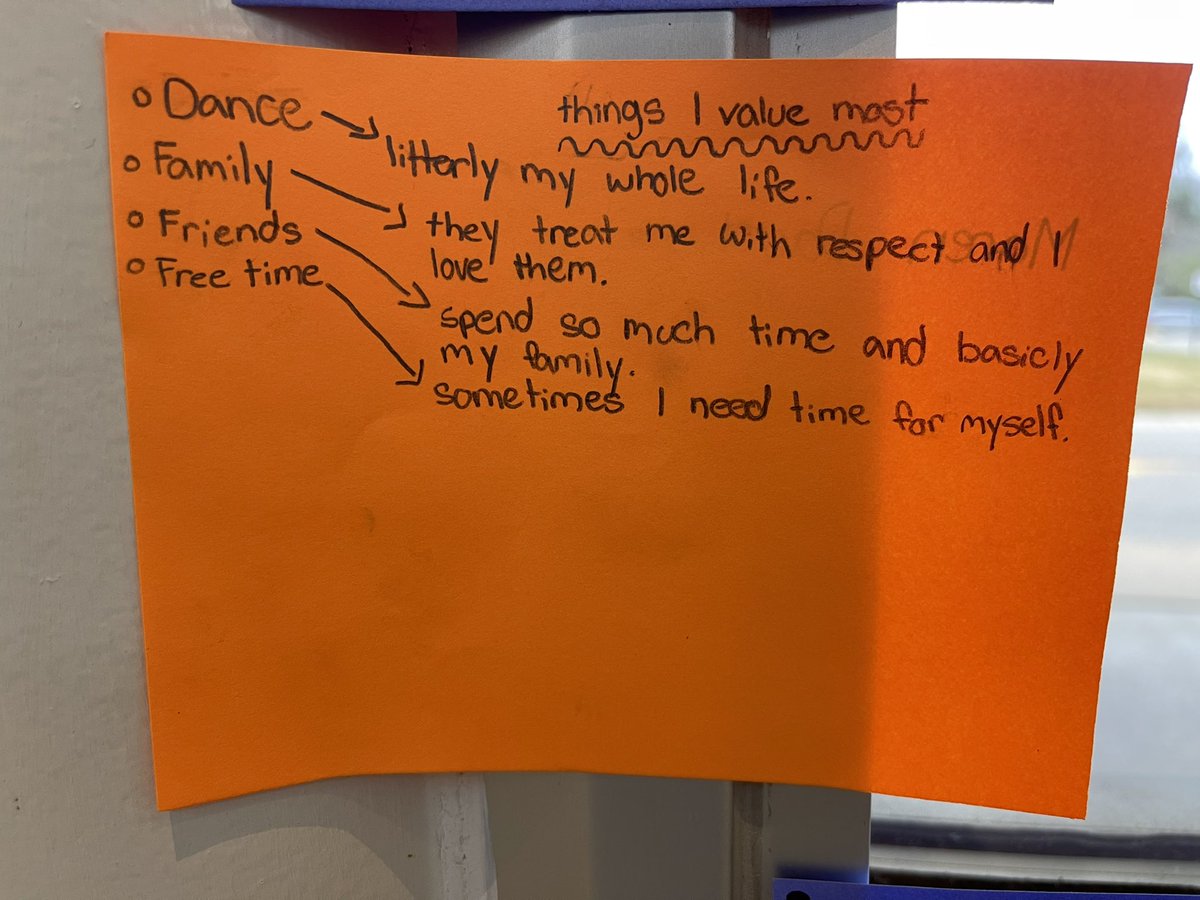 things I value most
o Dance → litterly my whole life.
o Family → they treat me with respect and I
love them.
o Friends → spend so much time and basicly
my family.
o Free time → sometimes I need time for myself.